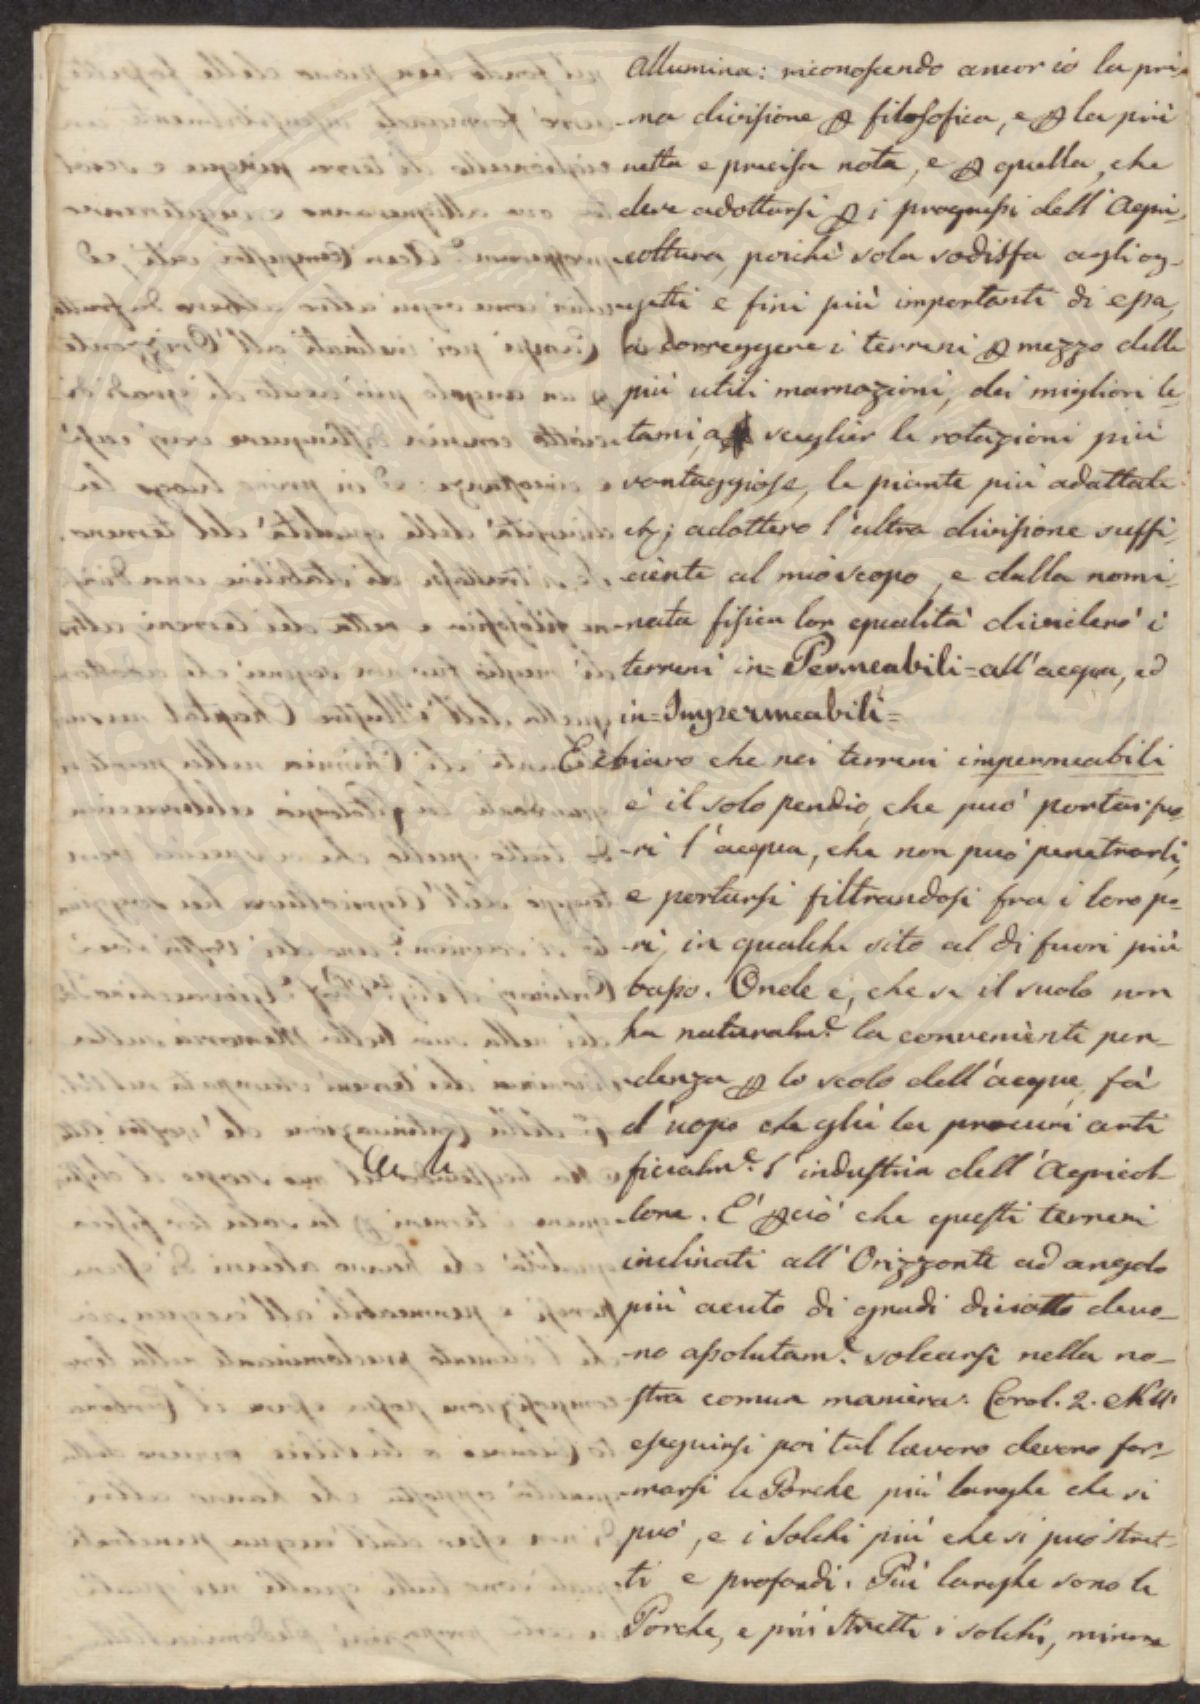 Allumina: riconoscendo ancor io la pri-
-ma divisione ꝑ filosofica, e ꝑ la più
netta e precisa nota, e ꝑ quella, che
deve adottarsi ꝑ i progressi dell'Agri-
coltura, poichè sola sodisfa agli og-
getti e fini più importanti di essa,
a correggere i terreni ꝑ mezzo delle
più utili marnazioni, dei migliori le-
tami, a sceglier le rotazioni più
vantaggiose, le piante più adattate
etc; adotterò l'altra divisione suffi-
ciente al mio scopo, e dalla nomi-
nata fisica lor qualità dividerò i
terreni in=Permeabili=all'acqua, ed
in=Impermeabili=
E' chiaro che nei terreni impermeabili
è il solo pendio, che può portar fuo-
-ri l'acqua, che non può penetrarli,
e portarsi filtrandosi fra i loro po-
-ri, in qualche sito al di fuori più
basso. Onde è, che se il suolo non
ha naturalm.e la conveniente pen-
-denza ꝑ lo scolo dell'acque, fà
d'uopo che gliè la procuri arti
ficialm.e l'industria dell'Agricol-
tore. E' ꝑciò che questi terreni
inclinati all'Orizzonte ad angolo
più acuto di gradi diciotto devo-
-no assolutam.e solcarsi nella no-
stra comun maniera. Corol. 2. Nell'
eseguirsi poi tal lavoro devono for-
-marsi le Porche più larghe che si
può, e i Solchi più che si può stret-
ti e profondi. Più larghe sono le
Porche, e più stretti i solchi, minore